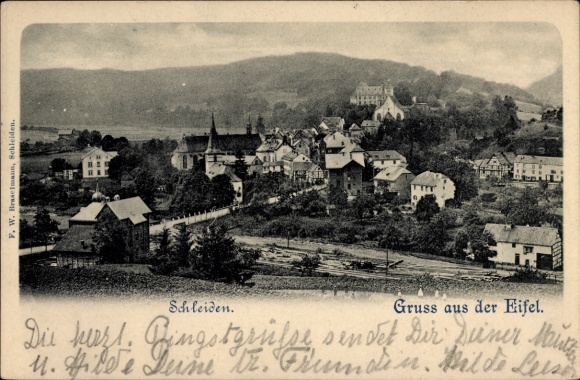 F. W. Braselmann, Schleiden.
Schleiden.
Gruss aus der Eifel.
Die herzl. Pfingstgrüsse sendet Dir, Deiner
u. Hilde Deine tr. Freundin. Hilde